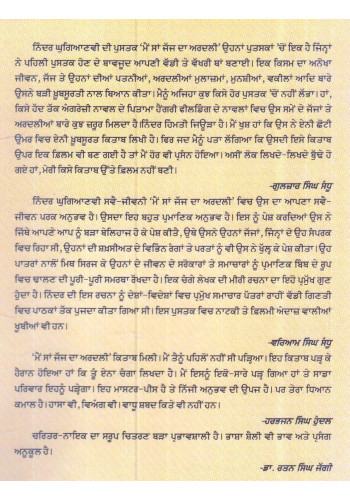 ਨਿੰਦਰ ਘੁਗਿਆਣਵੀ ਦੀ ਪੁਸਤਕ 'ਮੈਂ ਸਾਂ ਜੱਜ ਦਾ ਅਰਦਲੀ' ਉਹਨਾਂ ਪੁਤਸਕਾਂ 'ਚੋਂ ਇਕ ਹੈ ਜਿਨ੍ਹਾਂ
ਨੇ ਪਹਿਲੀ ਪੁਸਤਕ ਹੋਣ ਦੇ ਬਾਵਜੂਦ ਆਪਣੀ ਵੱਡੀ ਤੇ ਵੱਖਰੀ ਥਾਂ ਬਣਾਈ। ਇਕ ਕਿਸਮ ਦਾ ਅਨੋਖਾ
ਜੀਵਨ, ਜੱਜ ਤੇ ਉਹਨਾਂ ਦੀਆਂ ਪਤਨੀਆਂ, ਅਰਦਲੀਆਂ ਮੁਲਾਜ਼ਮਾਂ, ਮੁਨਸ਼ੀਆਂ, ਵਕੀਲਾਂ ਆਦਿ ਬਾਰੇ
ਉਸਨੇ ਬੜੀ ਖ਼ੂਬਸੂਰਤੀ ਨਾਲ ਬਿਆਨ ਕੀਤਾ। ਮੈਨੂੰ ਅਜਿਹਾ ਕੁਝ ਕਿਸੇ ਹੋਰ ਪੁਸਤਕ 'ਚੋਂ ਨਹੀਂ ਲੱਭਾ। ਹਾਂ,
ਕਿਸੇ ਹੱਦ ਤੱਕ ਅੰਗਰੇਜ਼ੀ ਨਾਵਲ ਦੇ ਪਿਤਾਮਾ ਹੈਂਗਰੀ ਫੀਲਡਿੰਗ ਦੇ ਨਾਵਲਾਂ ਵਿਚ ਉਸ ਸਮੇਂ ਦੇ ਜੱਜਾਂ ਤੇ
ਅਰਦਲੀਆਂ ਬਾਰੇ ਕੁਝ ਜ਼ਰੂਰ ਮਿਲਦਾ ਹੈ। ਨਿੰਦਰ ਹਿਮਤੀ ਜਿਊੜਾ ਹੈ। ਮੈਂ ਖੁਸ਼ ਹਾਂ ਕਿ ਉਸ ਨੇ ਏਨੀ ਛੋਟੀ
ਉਮਰ ਵਿਚ ਏਨੀ ਖ਼ੂਬਸੂਰਤ ਕਿਤਾਬ ਲਿਖੀ ਹੈ। ਫਿਰ ਜਦ ਮੈਨੂੰ ਪਤਾ ਲੱਗਿਆ ਕਿ ਉਸਦੀ ਇਸੇ ਕਿਤਾਬ
ਉਪਰ ਇਕ ਫ਼ਿਲਮ ਵੀ ਬਣ ਗਈ ਹੈ ਤਾਂ ਮੈਂ ਹੋਰ ਵੀ ਪ੍ਰਸੰਨ ਹੋਇਆ। ਅਸੀਂ ਲੋਕ ਲਿਖਦੇ-ਲਿਖਦੇ ਬੁੱਢੇ ਹੋ
ਗਏ ਹਾਂ, ਮੇਰੀ ਕਿਸੇ ਕਿਤਾਬ ਉੱਤੇ ਫ਼ਿਲਮ ਨਹੀਂ ਬਣੀ।
-ਗੁਲਜ਼ਾਰ ਸਿੰਘ ਸੰਧੂ
ਨਿੰਦਰ ਘੁਗਿਆਣਵੀ ਸਵੈ-ਜੀਵਨੀ 'ਮੈਂ ਸਾਂ ਜੱਜ ਦਾ ਅਰਦਲੀ' ਵਿਚ ਉਸ ਦਾ ਆਪਣਾ ਸਵੈ-
ਜੀਵਨੀ ਪਰਕ ਅਨੁਭਵ ਹੈ। ਉਸਦਾ ਇਹ ਬਹੁਤ ਪ੍ਰਮਾਣਿਕ ਅਨੁਭਵ ਹੈ। ਇਸ ਨੂੰ ਪੇਸ਼ ਕਰਦਿਆਂ ਉਸ ਨੇ
ਜਿੱਥੇ ਆਪਣੇ ਆਪ ਨੂੰ ਬੜਾ ਬੇਲਿਹਾਜ਼ ਹੋ ਕੇ ਪੇਸ਼ ਕੀਤੈ, ਉਥੇ ਉਸਨੇ ਉਹਨਾਂ ਜੱਜਾਂ, ਜਿੰਨ੍ਹਾਂ ਦੇ ਉਹ ਸੰਪਰਕ
ਵਿਚ ਰਿਹਾ ਸੀ, ਉਹਨਾਂ ਦੀ ਸ਼ਖ਼ਸੀਅਤ ਦੇ ਵਿਭਿੰਨ ਰੰਗਾਂ ਤੇ ਪਰਤਾਂ ਨੂੰ ਵੀ ਉਸ ਨੇ ਖੁੱਲ੍ਹ ਕੇ ਪੇਸ਼ ਕੀਤਾ। ਉਹ
ਪਾਤਰਾਂ ਨਾਲੋਂ ਮਿਥ ਸਿਰਜ ਕੇ ਉਹਨਾਂ ਦੇ ਜੀਵਨ ਦੇ ਸਰੋਕਾਰਾਂ ਤੇ ਸਮਾਚਾਰਾਂ ਨੂੰ ਪ੍ਰਮਾਣਿਕ ਬਿੰਬ ਦੇ ਰੂਪ
ਵਿਚ ਢਾਲਣ ਦੀ ਪੂਰੀ-ਪੂਰੀ ਸਮਰਥਾ ਰੱਖਦਾ ਹੈ। ਇਕ ਚੰਗੇ ਲੇਖਕ ਦੀ ਮੀਰੀ ਰਚਨਾ ਦਾ ਇਹੋ ਪ੍ਰਮੁੱਖ ਗੁਣ
ਹੁੰਦਾ ਹੈ। ਨਿੰਦਰ ਦੀ ਇਸ ਰਚਨਾ ਨੂੰ ਦੇਸ਼ਾਂ-ਵਿਦੇਸ਼ਾਂ ਵਿਚ ਪ੍ਰਮੁੱਖ ਸਮਾਚਾਰ ਪੱਤਰਾਂ ਰਾਹੀਂ ਵੱਡੀ ਗਿਣਤੀ
ਵਿਚ ਪਾਠਕਾਂ ਤੱਕ ਪੁਜਦਾ ਕੀਤਾ ਗਿਆ ਸੀ। ਇਸ ਪੁਸਤਕ ਵਿਚ ਨਾਟਕੀ ਤੇ ਫ਼ਿਲਮੀ ਅੰਦਾਜ਼ ਵਾਲੀਆਂ
ਖੂਬੀਆਂ ਵੀ ਹਨ।
-ਵਰਿਆਮ ਸਿੰਘ ਸੰਧੂ
'ਮੈਂ ਸਾਂ ਜੱਜ ਦਾ ਅਰਦਲੀ' ਕਿਤਾਬ ਮਿਲੀ। ਮੈਂ ਤੈਨੂੰ ਪਹਿਲੋਂ ਨਹੀਂ ਸੀ ਪੜ੍ਹਿਆ। ਇਹ ਕਿਤਾਬ ਪੜ੍ਹ ਕੇ
ਹੈਰਾਨ ਹੋਇਆ ਹਾਂ ਕਿ ਤੂੰ ਏਨਾ ਚੰਗਾ ਲਿਖਦਾ ਹੈਂ। ਮੈਂ ਇਸਨੂੰ ਇਕੋ-ਸਾਰੇ ਪੜ੍ਹ ਗਿਆ ਹਾਂ ਤੇ ਸਾਡਾ
ਪਰਿਵਾਰ ਇਹਨੂੰ ਪੜ੍ਹੇਗਾ। ਇਹ ਮਾਸਟਰ-ਪੀਸ ਹੈ ਤੇ ਨਿੱਜੀ ਅਨੁਭਵ ਦੀ ਉਪਜ ਹੈ। ਪਰ ਤੇਰਾ ਧਿਆਨ
ਕਮਾਲ ਹੈ। ਹਾਸਾ ਵੀ, ਵਿਅੰਗ ਵੀ। ਵਾਧੂ ਸ਼ਬਦ ਕਿਤੇ ਵੀ ਨਹੀਂ ਹਨ।
-ਹਰਭਜਨ ਸਿੰਘ ਹੁੰਦਲ
ਚਰਿਤਰ-ਨਾਇਕ ਦਾ ਸਰੂਪ ਚਿਤਰਣ ਬੜਾ ਪ੍ਰਭਾਵਸ਼ਾਲੀ ਹੈ। ਭਾਸ਼ਾ ਸ਼ੈਲੀ ਵੀ ਭਾਵ ਅਤੇ ਪ੍ਰਸੰਗ
ਅਨੁਕੂਲ ਹੈ।
-ਡਾ. ਰਤਨ ਸਿੰਘ ਜੱਗੀ